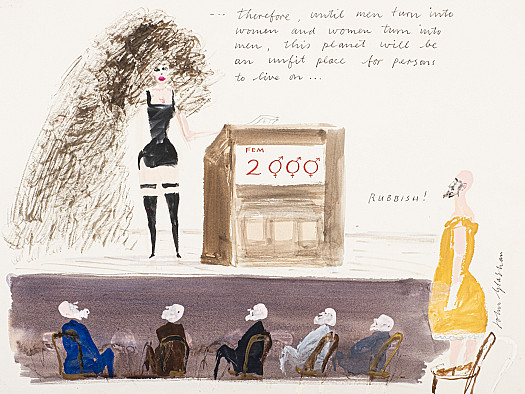 ... therefore, until men turn into
women and women turn into
men, this planet will be
an unfit place for persons
to live on ...
FEM
2000
RUBBISH!
John Glashan